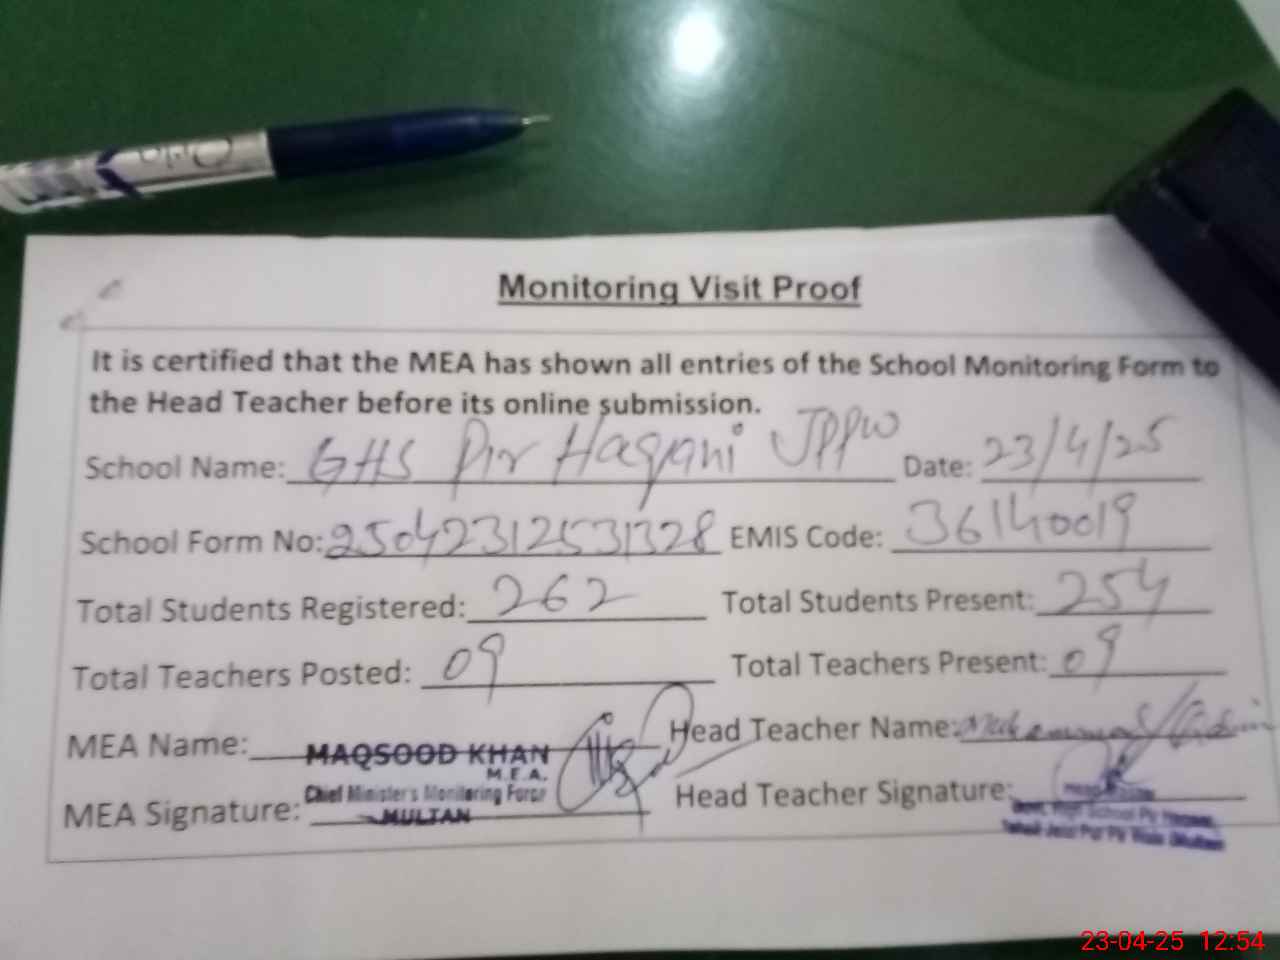 Monitoring Visit Proof
It is certified that the MEA has shown all entries of the School Monitoring Form to
the Head Teacher before its online submission.
School Name: GHS Pir Haqani JPPW Date: 23/4/25
School Form No: 25042312531328 EMIS Code: 36140019
Total Students Registered: 262 Total Students Present: 254
Total Teachers Posted: 09 Total Teachers Present: 09
MEA Name: MAQSOOD KHAN Head Teacher Name:
M.E.A.
MEA Signature: Chief Minister's Monitoring Force Head Teacher Signature:
MULTAN
23-04-25 12:54